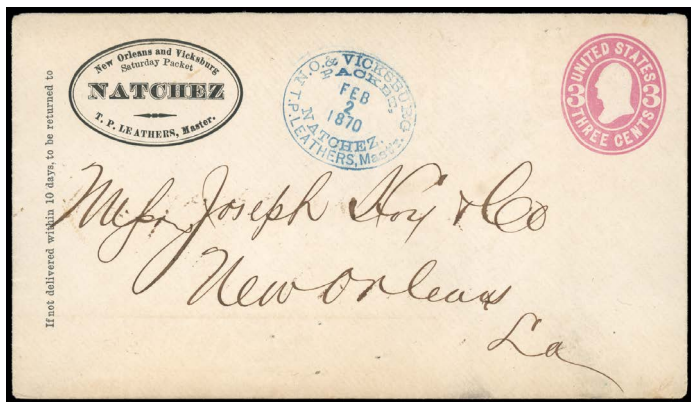 If not delivered within 10 days, to be returned to
New Orleans and Vicksburg
Saturday Packet
NATCHEZ
T. P. LEATHERS, Master.
N.O. & VICKSBURG
PACKET,
FEB
2
1870
NATCHEZ.
T.P. LEATHERS, Mast'r.
UNITED STATES
3 3
THREE CENTS
Messrs Joseph Hoy & Co
New Orleans
La